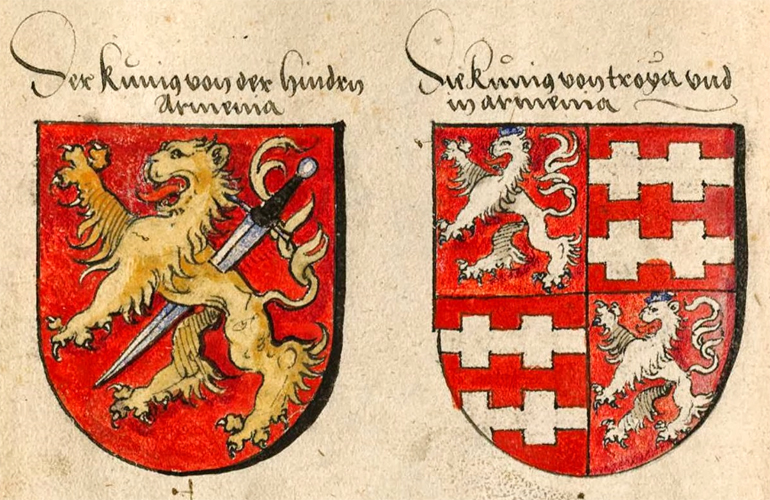 Der kunig von der hinden
Armenia
Die kunig von troya und
in armenia